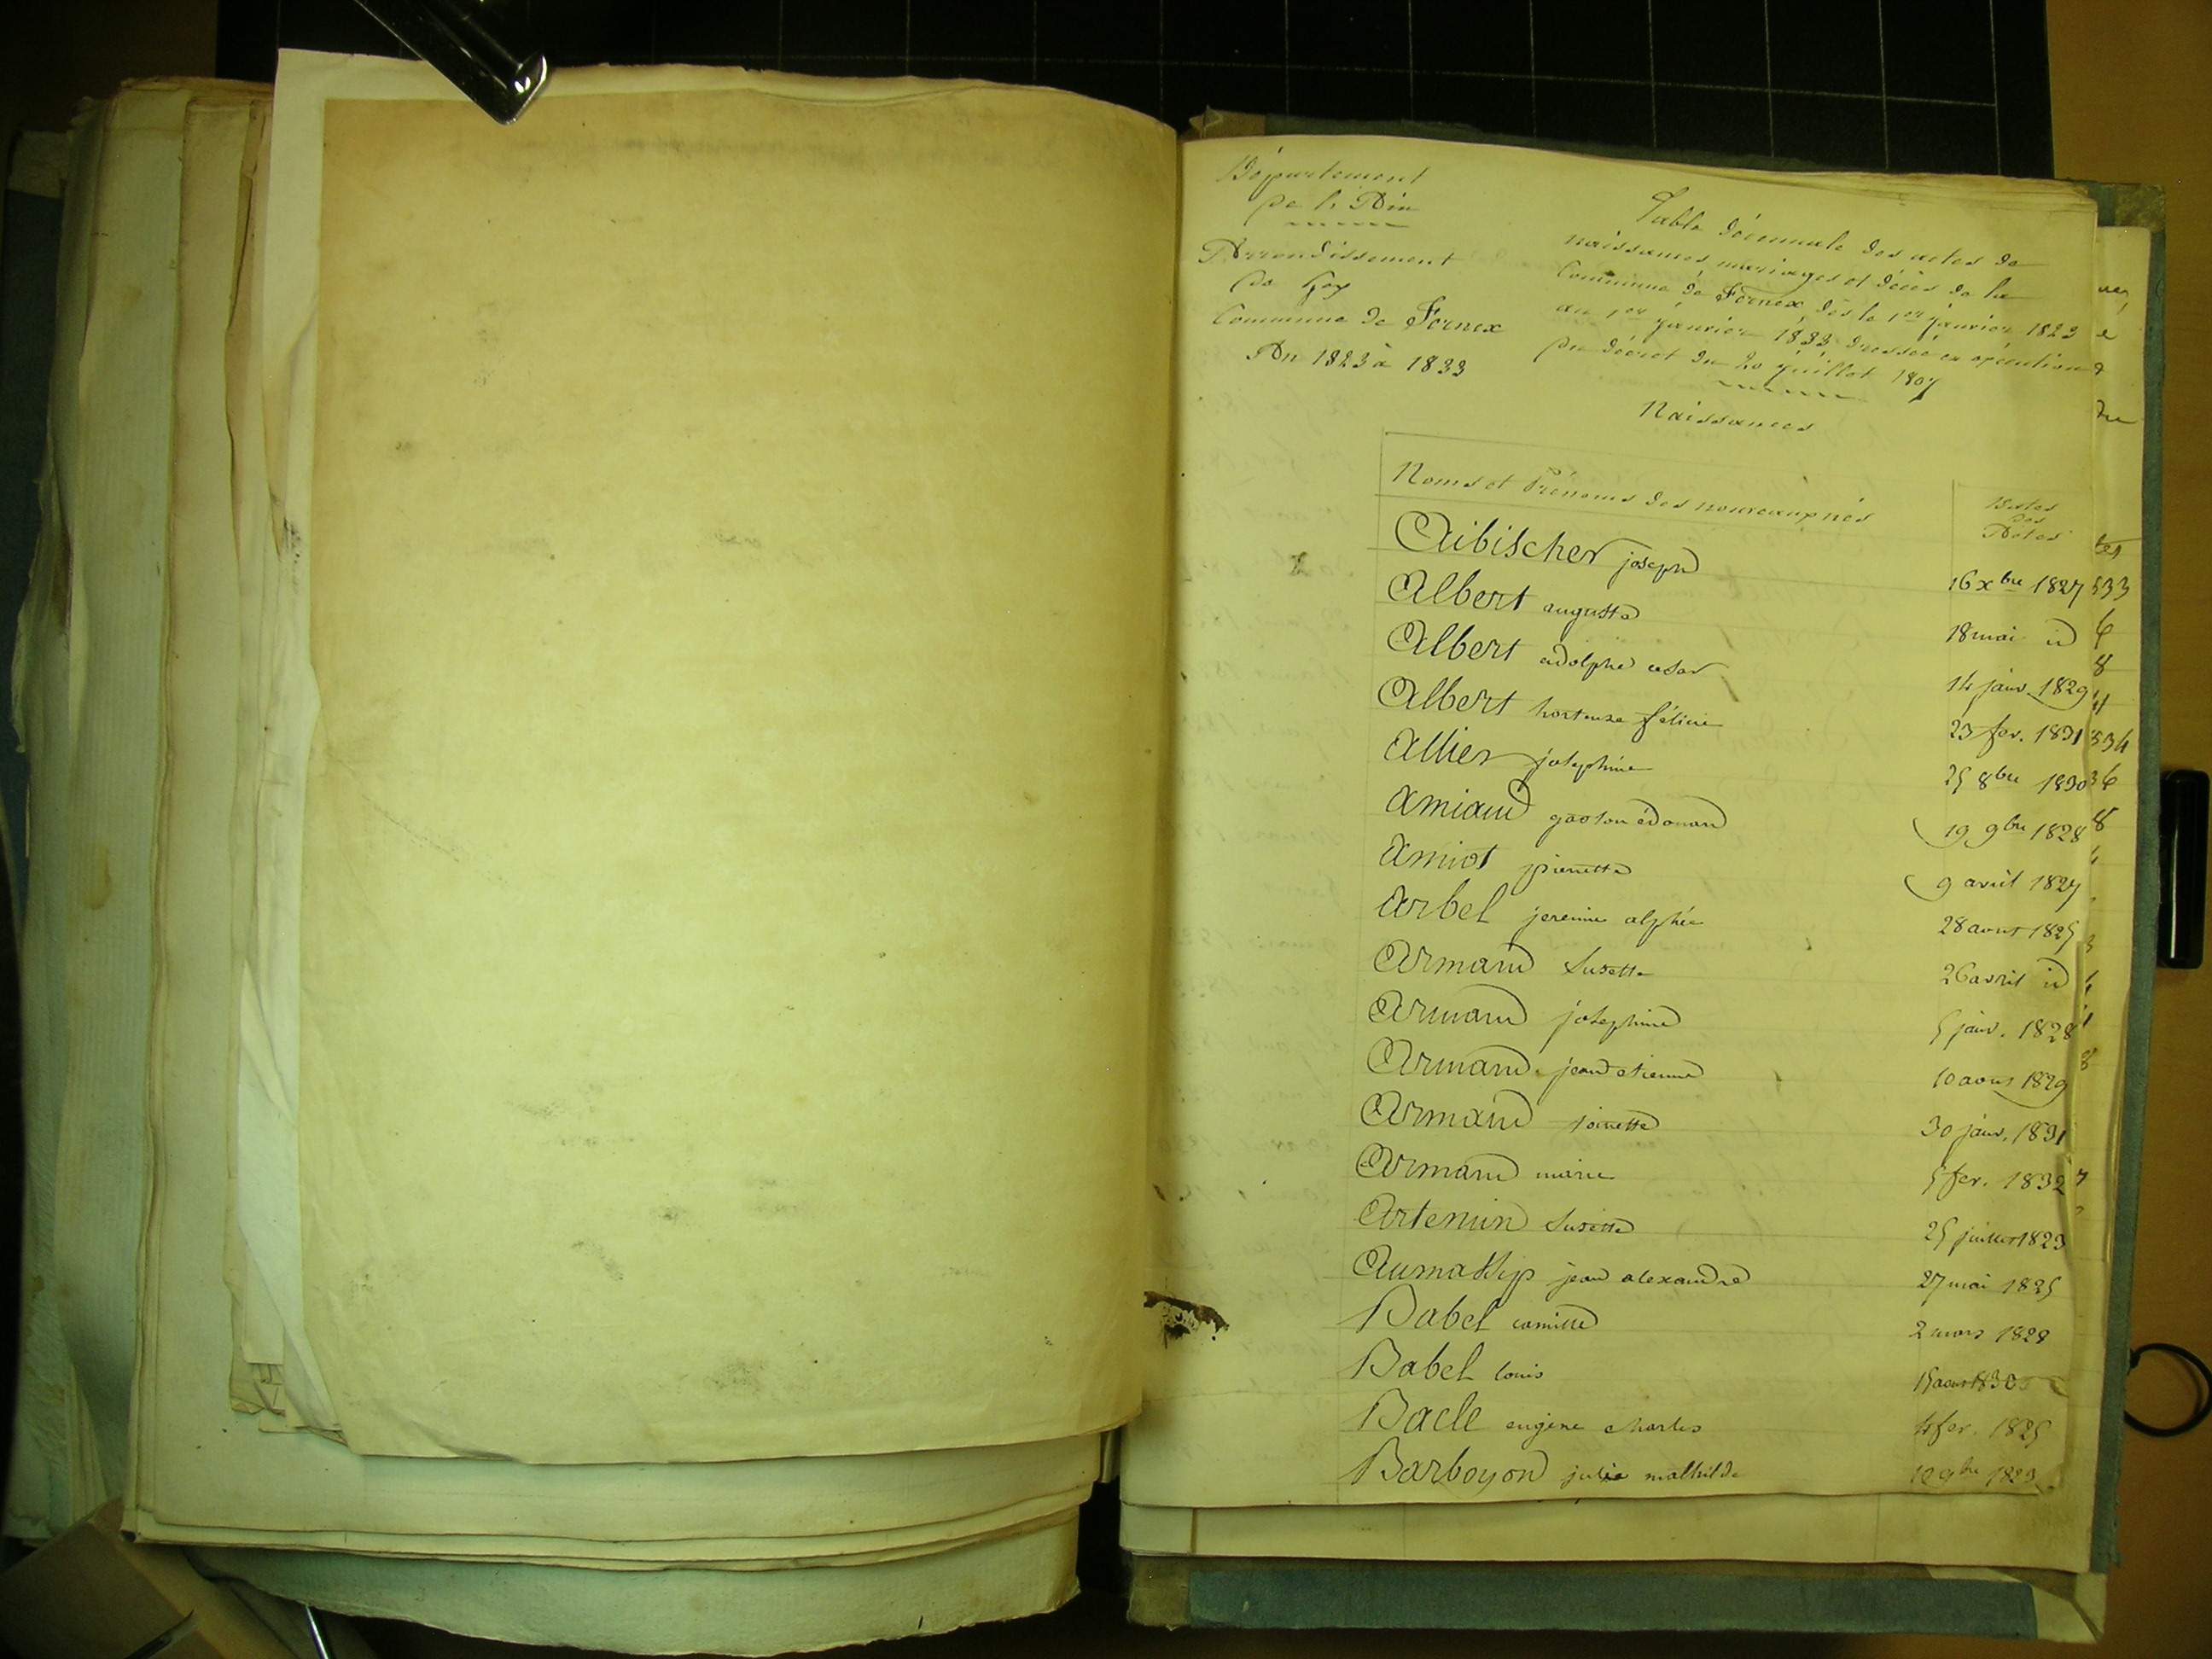 Département
de l'Ain
Arrondissement
de Gex
Commune de Fernex
An 1823 à 1833
Table décennale des actes de
naissances mariages et décès de la
Commune de Fernex dès le 1er janvier 1823
au 1er janvier 1833 dressée en exécution
du décret du 20 juillet 1807
Naissances
Noms et Prénoms des nouveaux nés
Dates
des
Actes
Aibischer joseph 16 xbre 1827
Albert auguste 18 mai id
Albert adolphe 14 janv. 1829
Albert hortense féline 23 fev. 1831
Allier josephine 25 8bre 1830
Amiaud gaston édouard 19 9bre 1828
Amiot pierrette 9 avril 1827
Arbel jeremie alphée 28 aout 1825
Armand Susette 26 avril id
Armand josephine 5 janv. 1828
Armand jean etienne 10 aout 1829
Armand 30 janv. 1831
Armand marie 5 fev. 1832
Artemin Susette 25 juillet 1823
jean alexandre 27 mai 1825
Babel camille 2 mars 1828
Babel louis 15 aout 1830
Bacle eugène charles 4 fev. 1825
Barboyon julie mathilde 12 9bre 1823